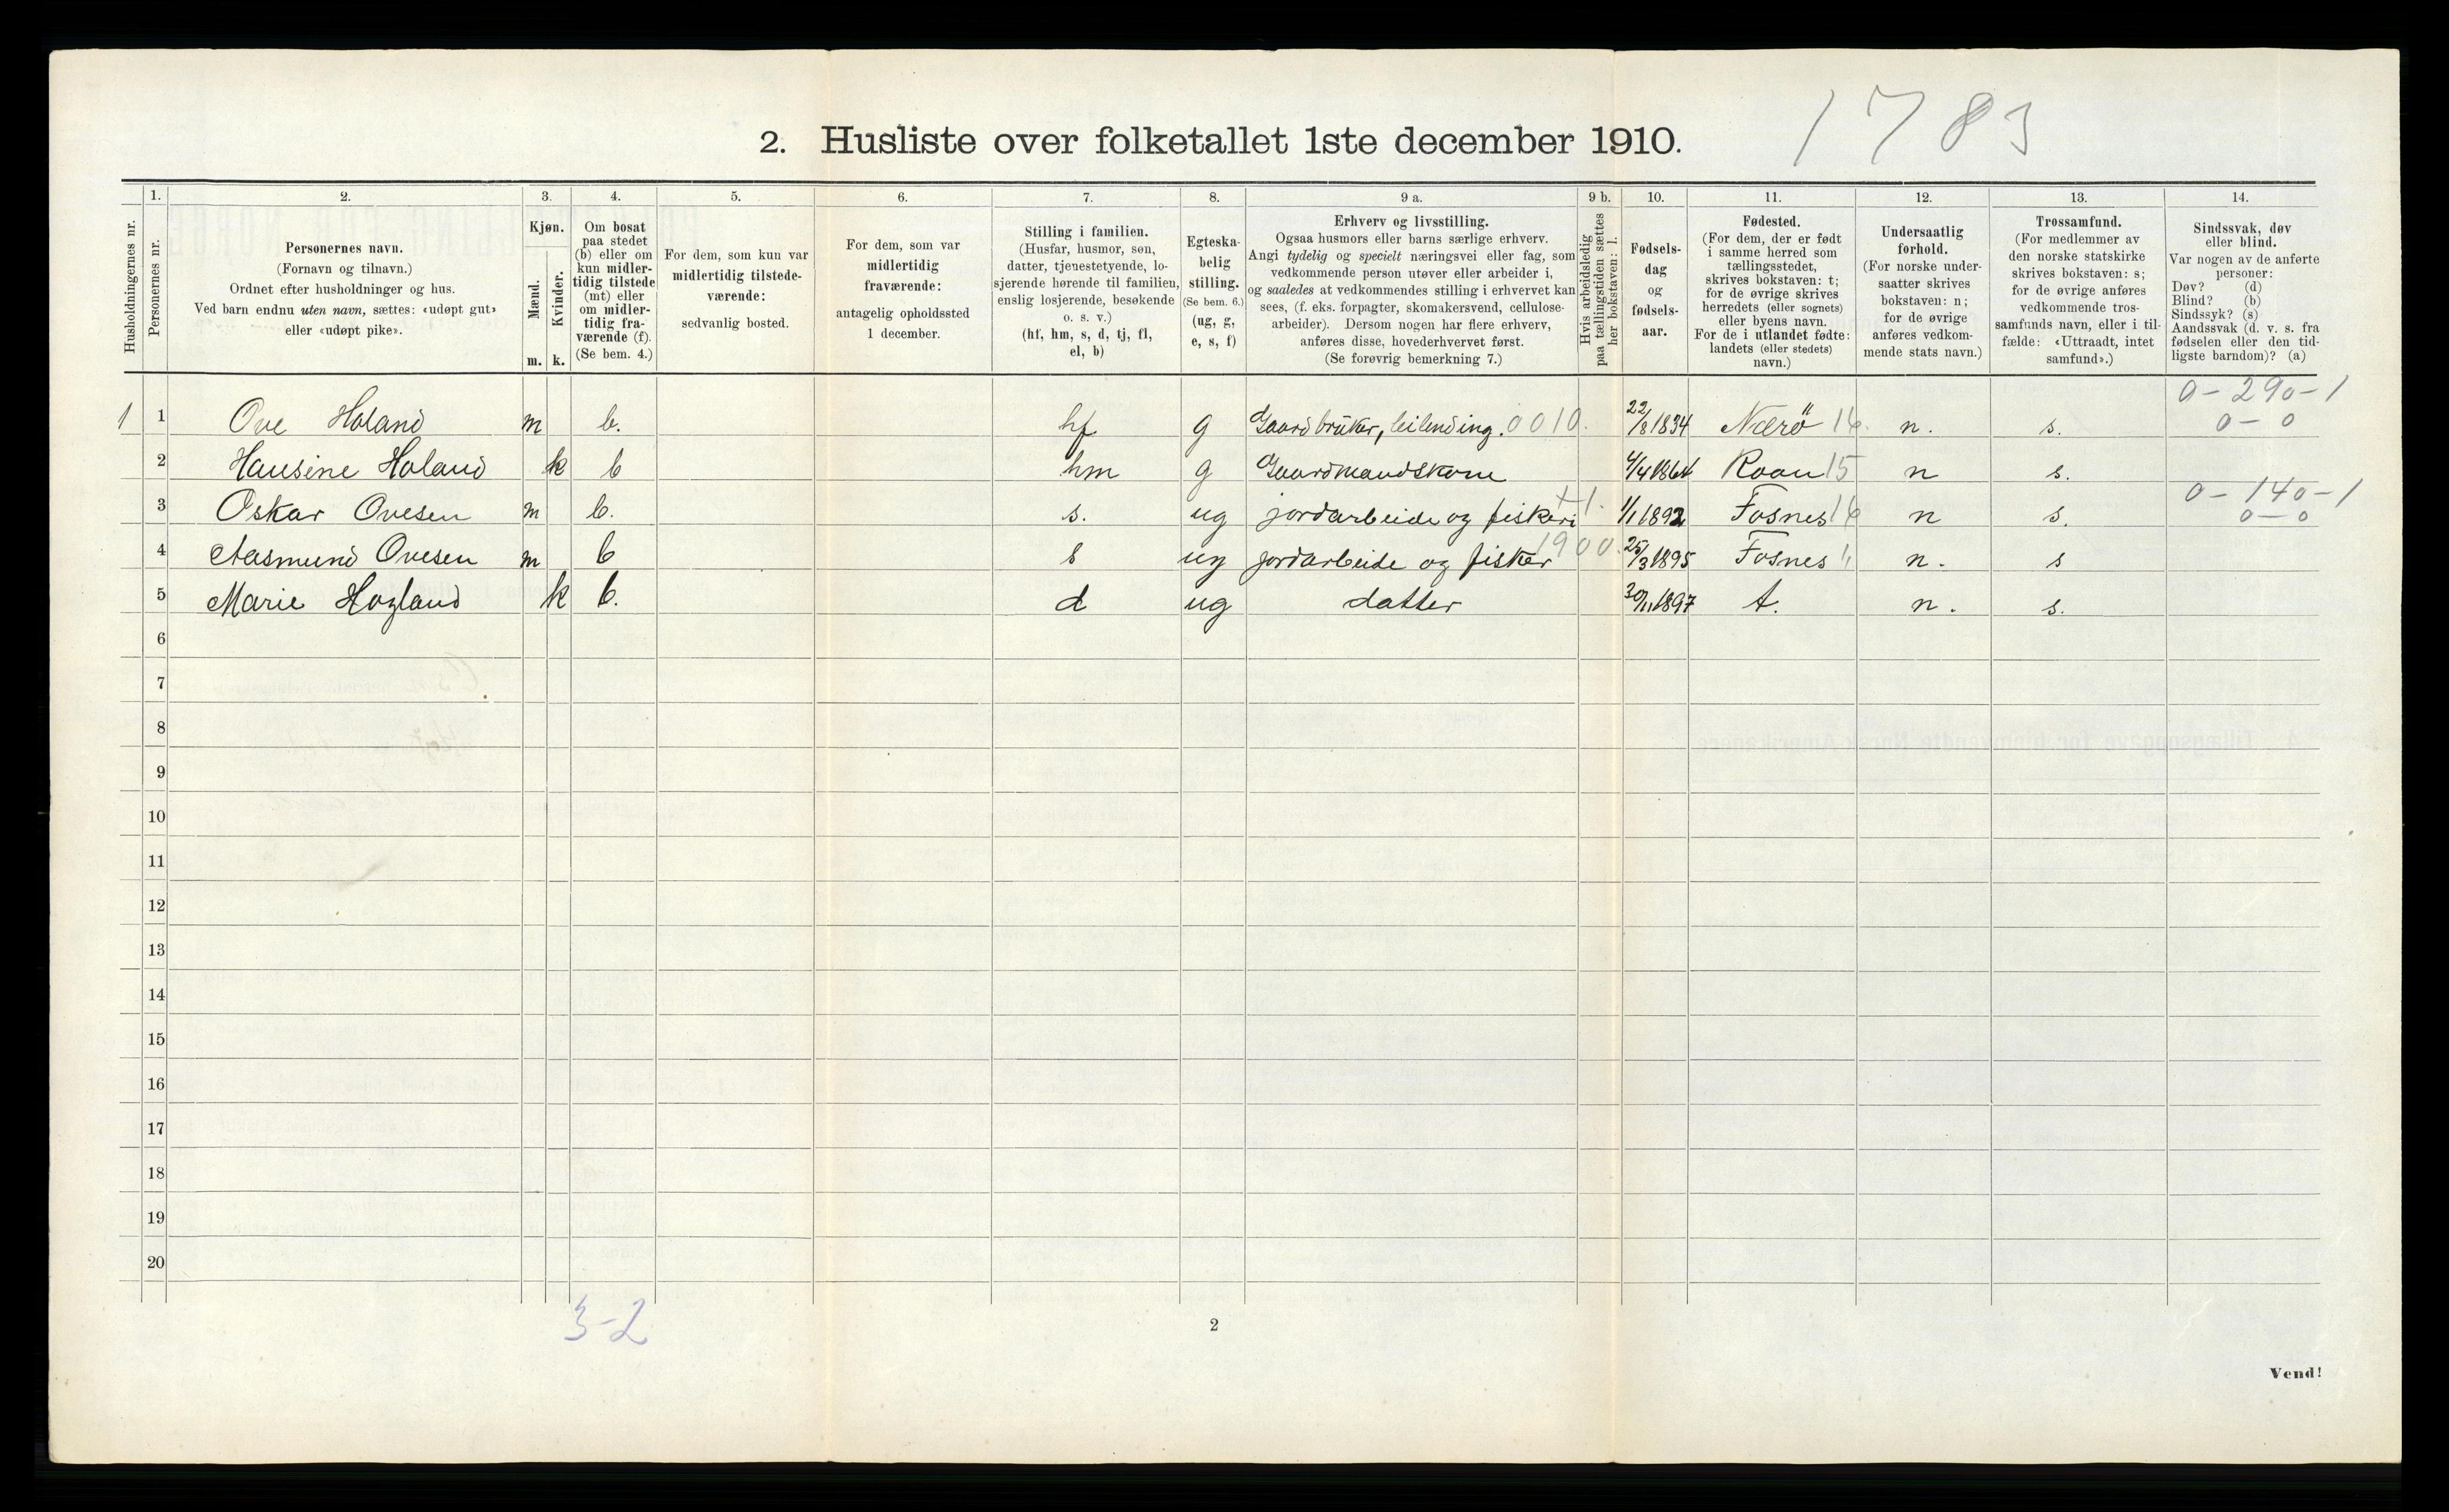 1783
2. Husliste over folketallet 1ste december 1910.
Husholdningernes nr.
1.
Personernes nr.
2.
Personernes navn.
(Fornavn og tilnavn.)
Ordnet efter husholdninger og hus.
Ved barn endnu uten navn, sættes: «udøpt gut»
eller «udøpt pike».
3.
Kjøn.
Mænd.
Kvinder.
m. k.
4.
Om bosat
paa stedet
(b) eller om
kun midler-
tidig tilstede
(mt) eller
om midler-
tidig fra-
værende (f).
(Se bem. 4.)
5.
For dem, som kun var
midlertidig tilstede-
værende:
sedvanlig bosted.
6.
For dem, som var
midlertidig
fraværende:
antagelig opholdssted
1 december.
7.
Stilling i familien.
(Husfar, husmor, søn,
datter, tjenestetyende, lo-
sjerende hørende til familien,
enslig losjerende, besøkende
o. s. v.)
(hf, hm, s, d, tj, fl,
el, b)
8.
Egteska-
belig
stilling.
(Se bem. 6.)
(ug, g,
e, s, f)
9 a.
Erhverv og livsstilling.
Ogsaa husmors eller barns særlige erhverv.
Angi tydelig og specielt næringsvei eller fag, som
vedkommende person utøver eller arbeider i,
og saaledes at vedkommendes stilling i erhvervet kan
sees, (f. eks. forpagter, skomakersvend, cellulose-
arbeider). Dersom nogen har flere erhverv,
anføres disse, hovederhvervet først.
(Se forøvrig bemerkning 7.)
9 b.
Hvis arbeidsledig
paa tællingstiden sættes
her bokstaven: l.
10.
Fødsels-
dag
og
fødsels-
aar.
11.
Fødested.
(For dem, der er født
i samme herred som
tællingsstedet,
skrives bokstaven: t;
for de øvrige skrives
herredets (eller sognets)
eller byens navn.
For de i utlandet fødte:
landets (eller stedets)
navn.)
12.
Undersaatlig
forhold.
(For norske under-
saatter skrives
bokstaven: n;
for de øvrige
anføres vedkom-
mende stats navn.)
13.
Trossamfund.
(For medlemmer av
den norske statskirke
skrives bokstaven: s;
for de øvrige anføres
vedkommende tros-
samfunds navn, eller i til-
fælde: «Uttraadt, intet
samfund».)
14.
Sindssvak, døv
eller blind.
Var nogen av de anførte
personer:
Døv? (d)
Blind? (b)
Sindssyk? (s)
Aandssvak (d. v. s. fra
fødselen eller den tid-
ligste barndom)? (a)
0-290-1
1 1 Ove Holand m b. hf g Gaardbruker, leilending. 0010. 22/8 1834 Nærö 16. n. s. 0-0
2 Hansine Holand k b hm g Gaardmandskone 4/4 1864 Roan 15 n s.
0-140-1
3 Oskar Ovesen m b. s. ug jordarbeide og fiskeri +1. 1/1 1892 Fosnes 16 n s. 0-0
4 Aasmund Ovesen m b s ug jordarbeide og fisker 1900. 25/3 1895 Fosnes " n. s
5 Marie Hogland k b. d ug datter 30/11 1897 t. n. s.
6
7
8
9
10
11
12
13
14
15
16
17
18
19
20
3-2
2
Vend!